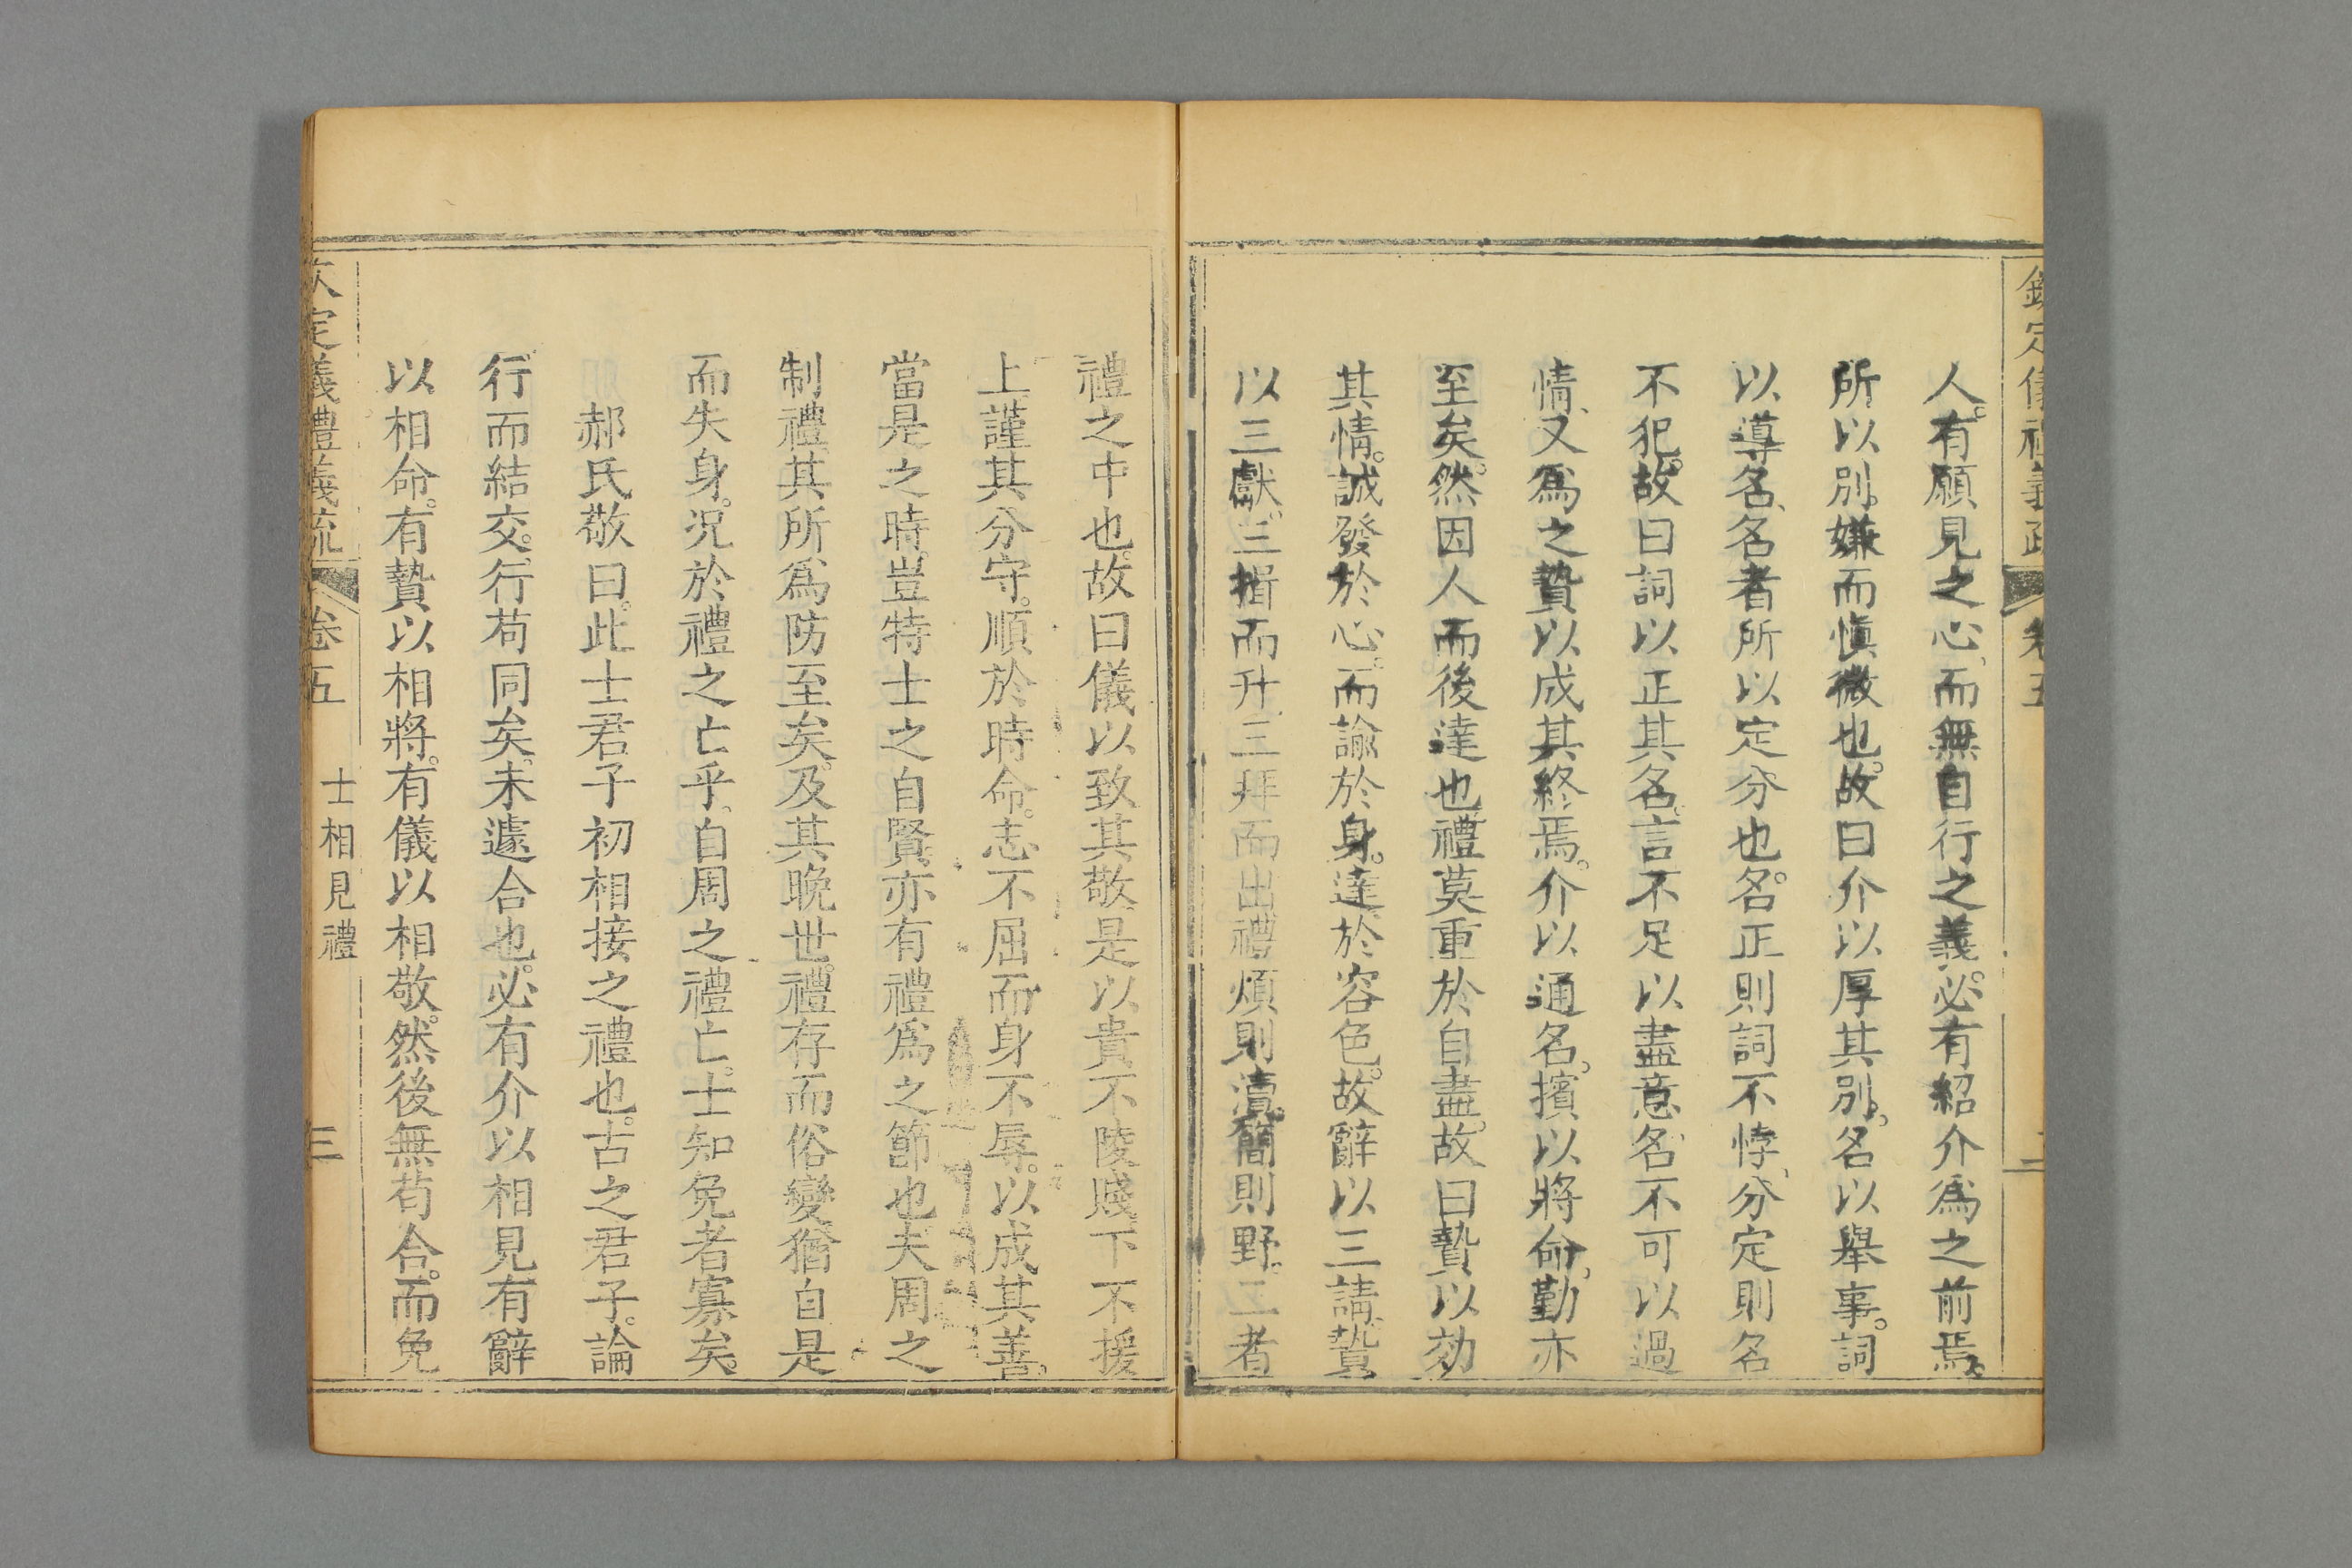 欽定儀禮義疏 卷五 二
人。有願見之心、而無自行之義。必有紹介爲之前焉。
所以别嫌而愼微也。故曰介以厚其别。名以舉事。詞
以導名、名者所以定分也。名正則詞不悖、分定則名
不犯。故曰詞以正其名。言不足以盡意、名不可以過
情、又爲之贄以成其終焉。介以通名。擯以將命。勤亦
至矣。然因人而後達也。禮莫重於自盡。故曰贄以効
其情。誠發於心。而諭於身。達於容色。故辭以三請贄
以三獻。三揖而升三拜而出禮煩則瀆。簡則野。三者
禮之中也。故曰儀以致其敬。是以貴不陵賤下不援
上。謹其分守。順於時命。志不屈而身不辱。以成其善。
當是之時。豈特士之自賢。亦有禮爲之節也夫周之
制禮其所爲防至矣。及其晚世。禮存而俗變。猶自是
而失身。况於禮之亡乎。自周之禮亡。士知免者寡矣。
郝氏敬曰。此士君子初相接之禮也。古之君子。論
行而結交。行苟同矣。未遽合也。必有介以相見有辭
以相命。有贄以相將。有儀以相敬。然後無苟合。而免
欽定儀禮義疏 卷五 士相見禮 三